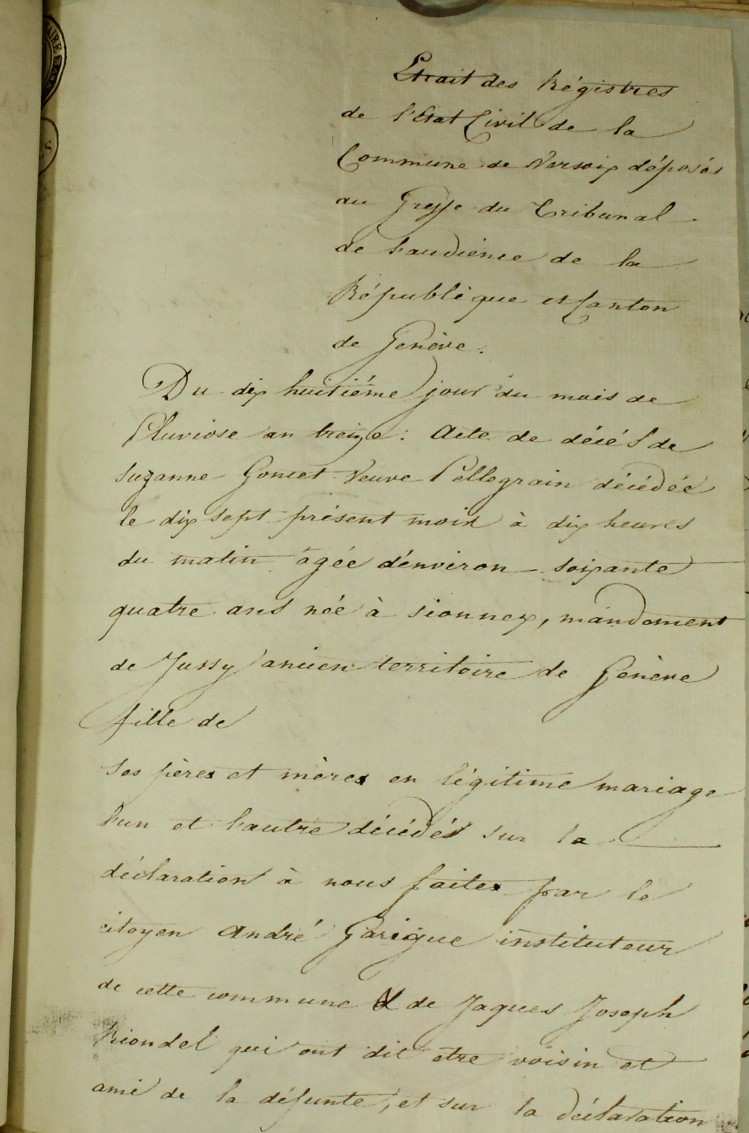 Extrait des Régistres
de l'Etat Civil de la
Commune de Versoix déposés
au Greffe du Tribunal
de l'audience de la
République et Canton
de Genève.
Du dix huitième jour du mois de
Pluviose an treize: Acte de décés de
Suzanne Goncet Veuve Pellegrain décédée
le dix sept présent mois à dix heures
du matin âgée d'environ soixante
quatre ans née à Sionnex, mandement
de Jussy ancien territoire de Genève
fille de
ses pères et mères en légitime mariage
l'un et l'autre décédés sur la
déclaration à nous faites par le
citoyen André Garigue instituteur
de cette commune & de Jaques Joseph
Riondel qui ont dit être voisin et
ami de la défunte, et sur la déclaration